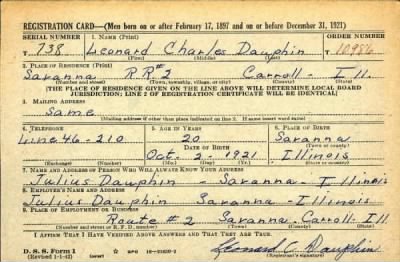 REGISTRATION CARD—(Men born on or after February 17, 1897 and on or before December 31, 1921)
SERIAL NUMBER 1. NAME (Print) ORDER NUMBER
T 738 Leonard Charles Dauphin T 10986
(First) (Middle) (Last)
2. PLACE OF RESIDENCE (Print)
Savanna R R # 2 Carroll - Ill.
(Number and street) (Town, township, village, or city) (County) (State)
[THE PLACE OF RESIDENCE GIVEN ON THE LINE ABOVE WILL DETERMINE LOCAL BOARD
JURISDICTION; LINE 2 OF REGISTRATION CERTIFICATE WILL BE IDENTICAL]
3. MAILING ADDRESS
Same
(Mailing address if other than place indicated on line 2. If same insert word same)
4. TELEPHONE 5. AGE IN YEARS 6. PLACE OF BIRTH
Line 46-210 20 Savanna
DATE OF BIRTH (Town or county)
Oct. 2 - 1921 Illinois
(Exchange) (Number) (Mo.) (Day) (Yr.) (State or country)
7. NAME AND ADDRESS OF PERSON WHO WILL ALWAYS KNOW YOUR ADDRESS
Julius Dauphin Savanna - Illinois
8. EMPLOYER'S NAME AND ADDRESS
Julius Dauphin Savanna - Illinois
9. PLACE OF EMPLOYMENT OR BUSINESS
Route # 2 Savanna - Carroll - Ill
(Number and street or R. F. D. number) (Town) (County) (State)
I AFFIRM THAT I HAVE VERIFIED ABOVE ANSWERS AND THAT THEY ARE TRUE.
D. S. S. Form 1
(Revised 1-1-42) (over) Leonard C Dauphin